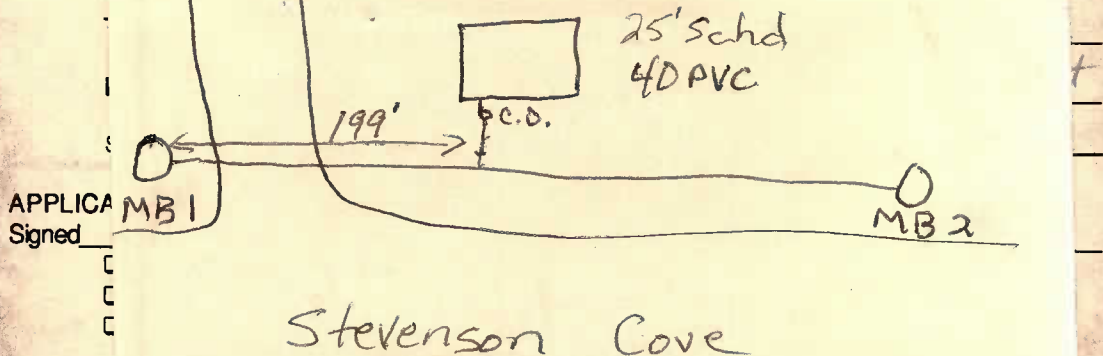 25' Schd
40 PVC
C.O.
199'
MB 1
MB 2
APPLICA
Signed
Stevenson Cove